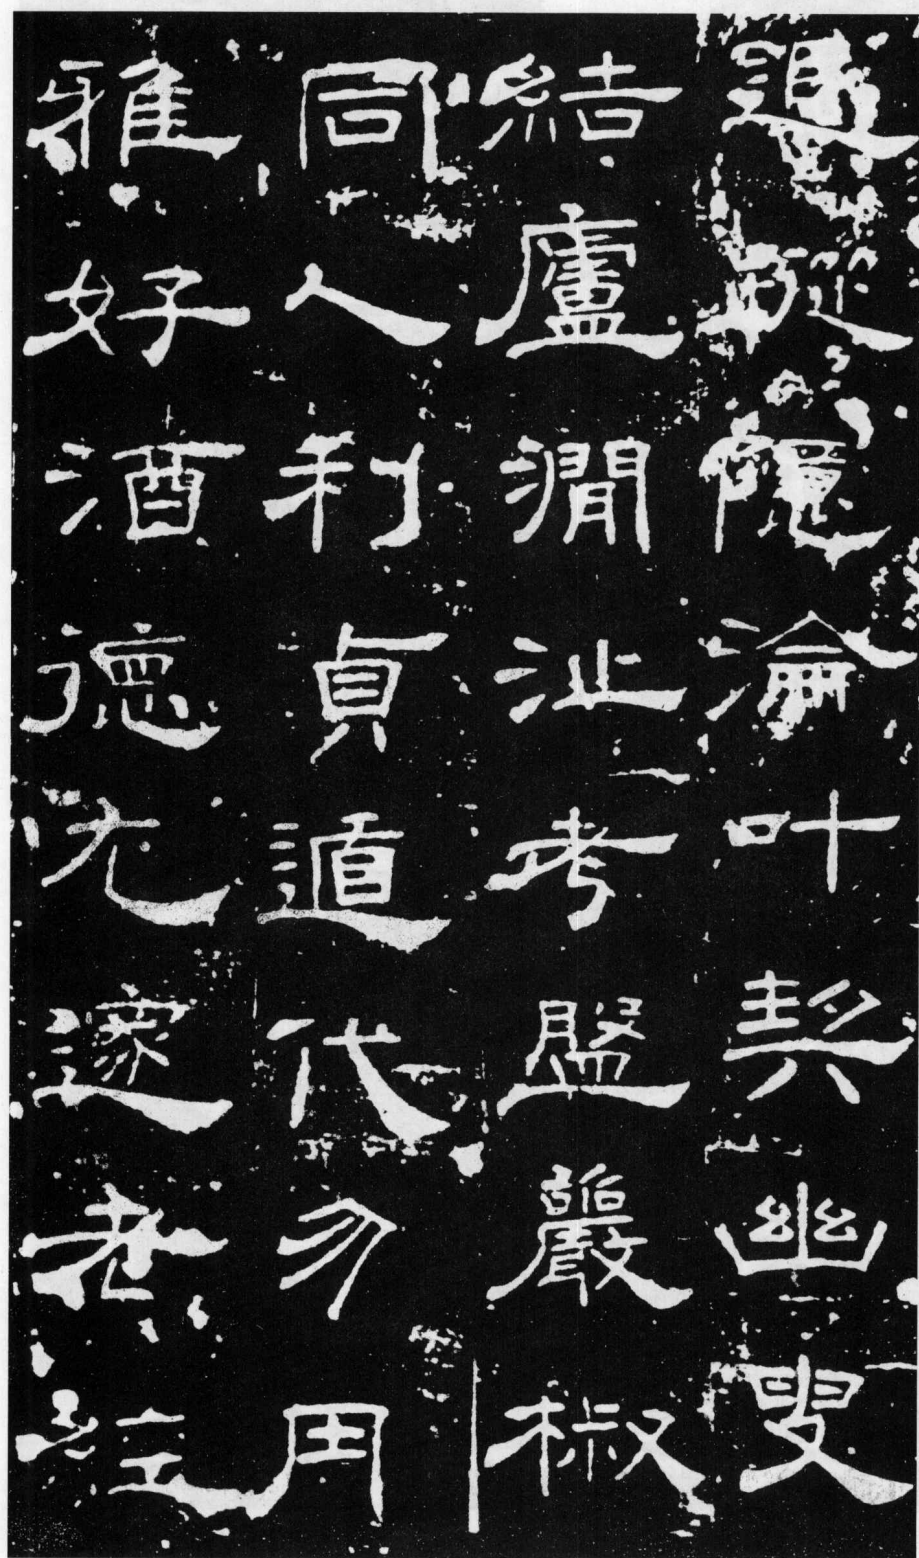 蹤隱淪叶契幽叟
結廬澗沚考盤巖椒
同人利貞遁代勿用
雅好酒德尤邃老